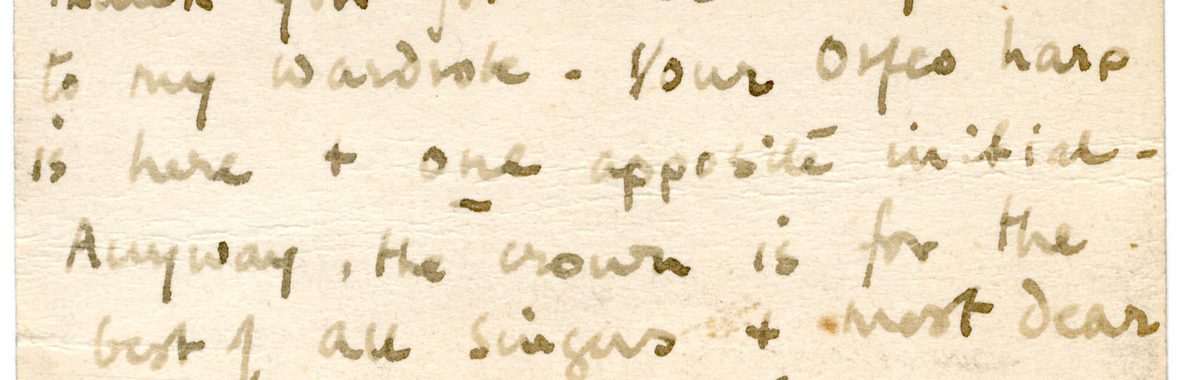 thank you for
to my wardrobe - Your Orfeo harp
is here + one apposite initial -
Anyway, the crown is for the
best of all singers + most dear